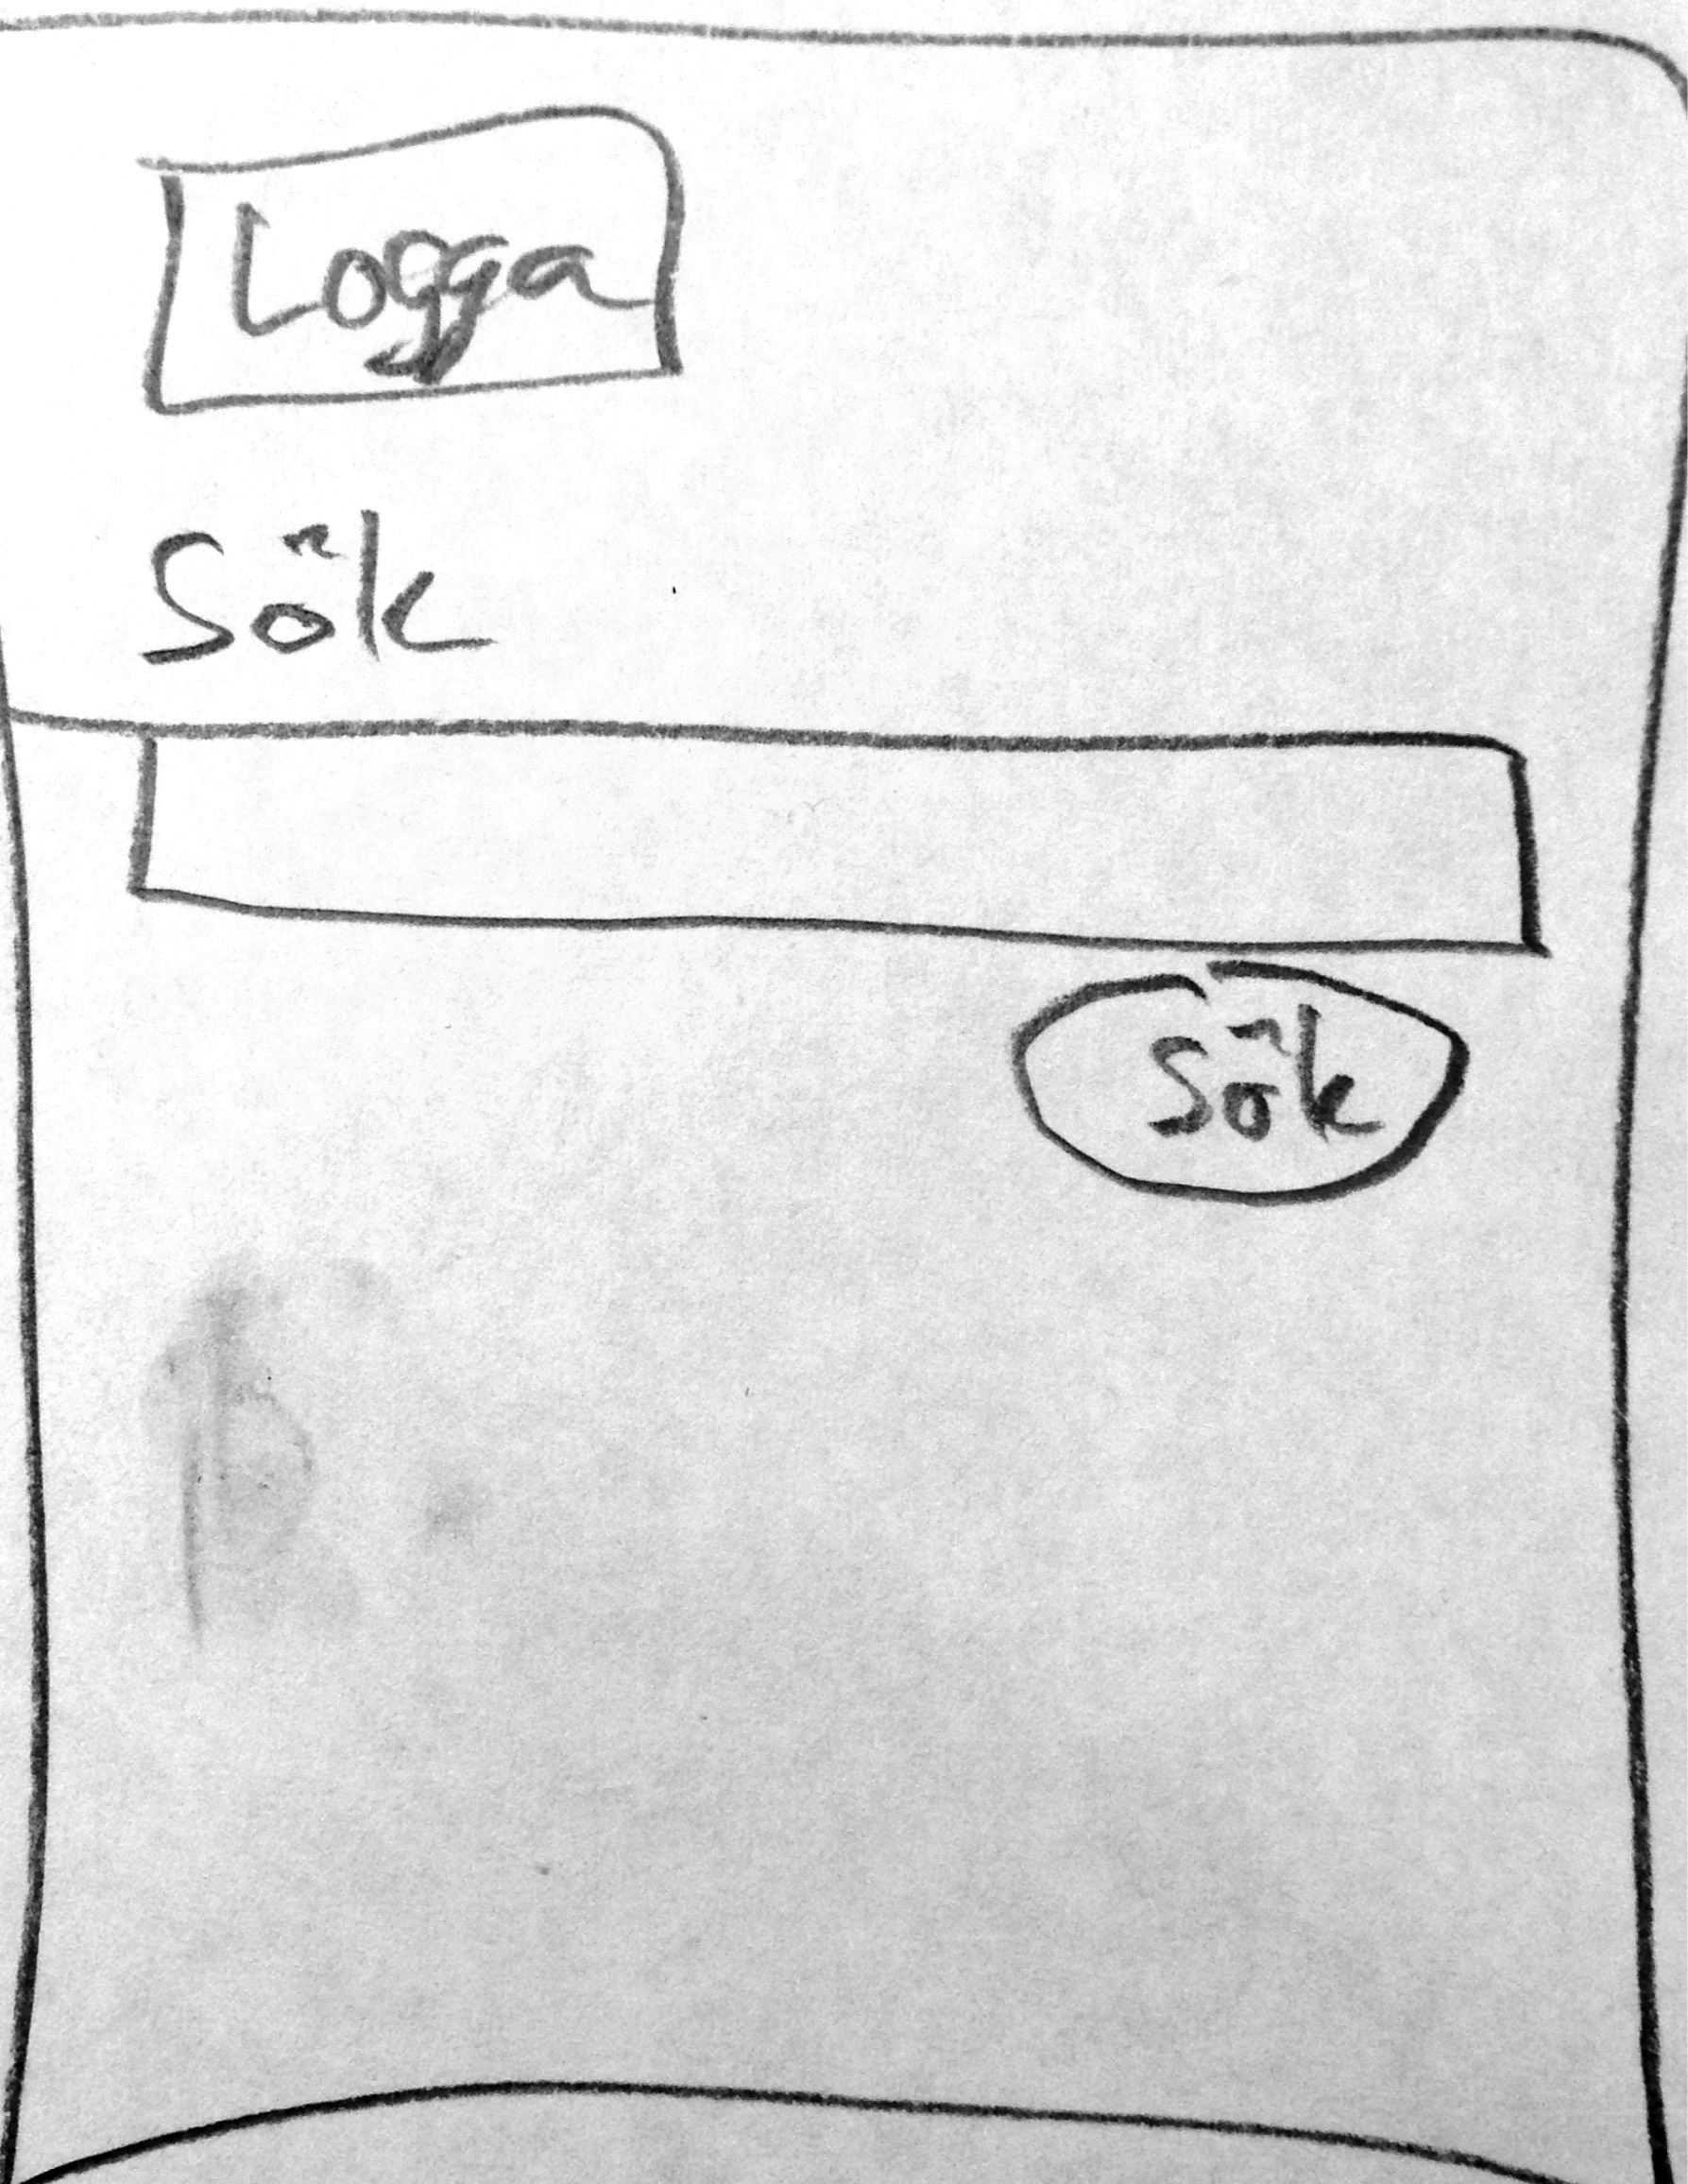 Logga
Sök
Sök